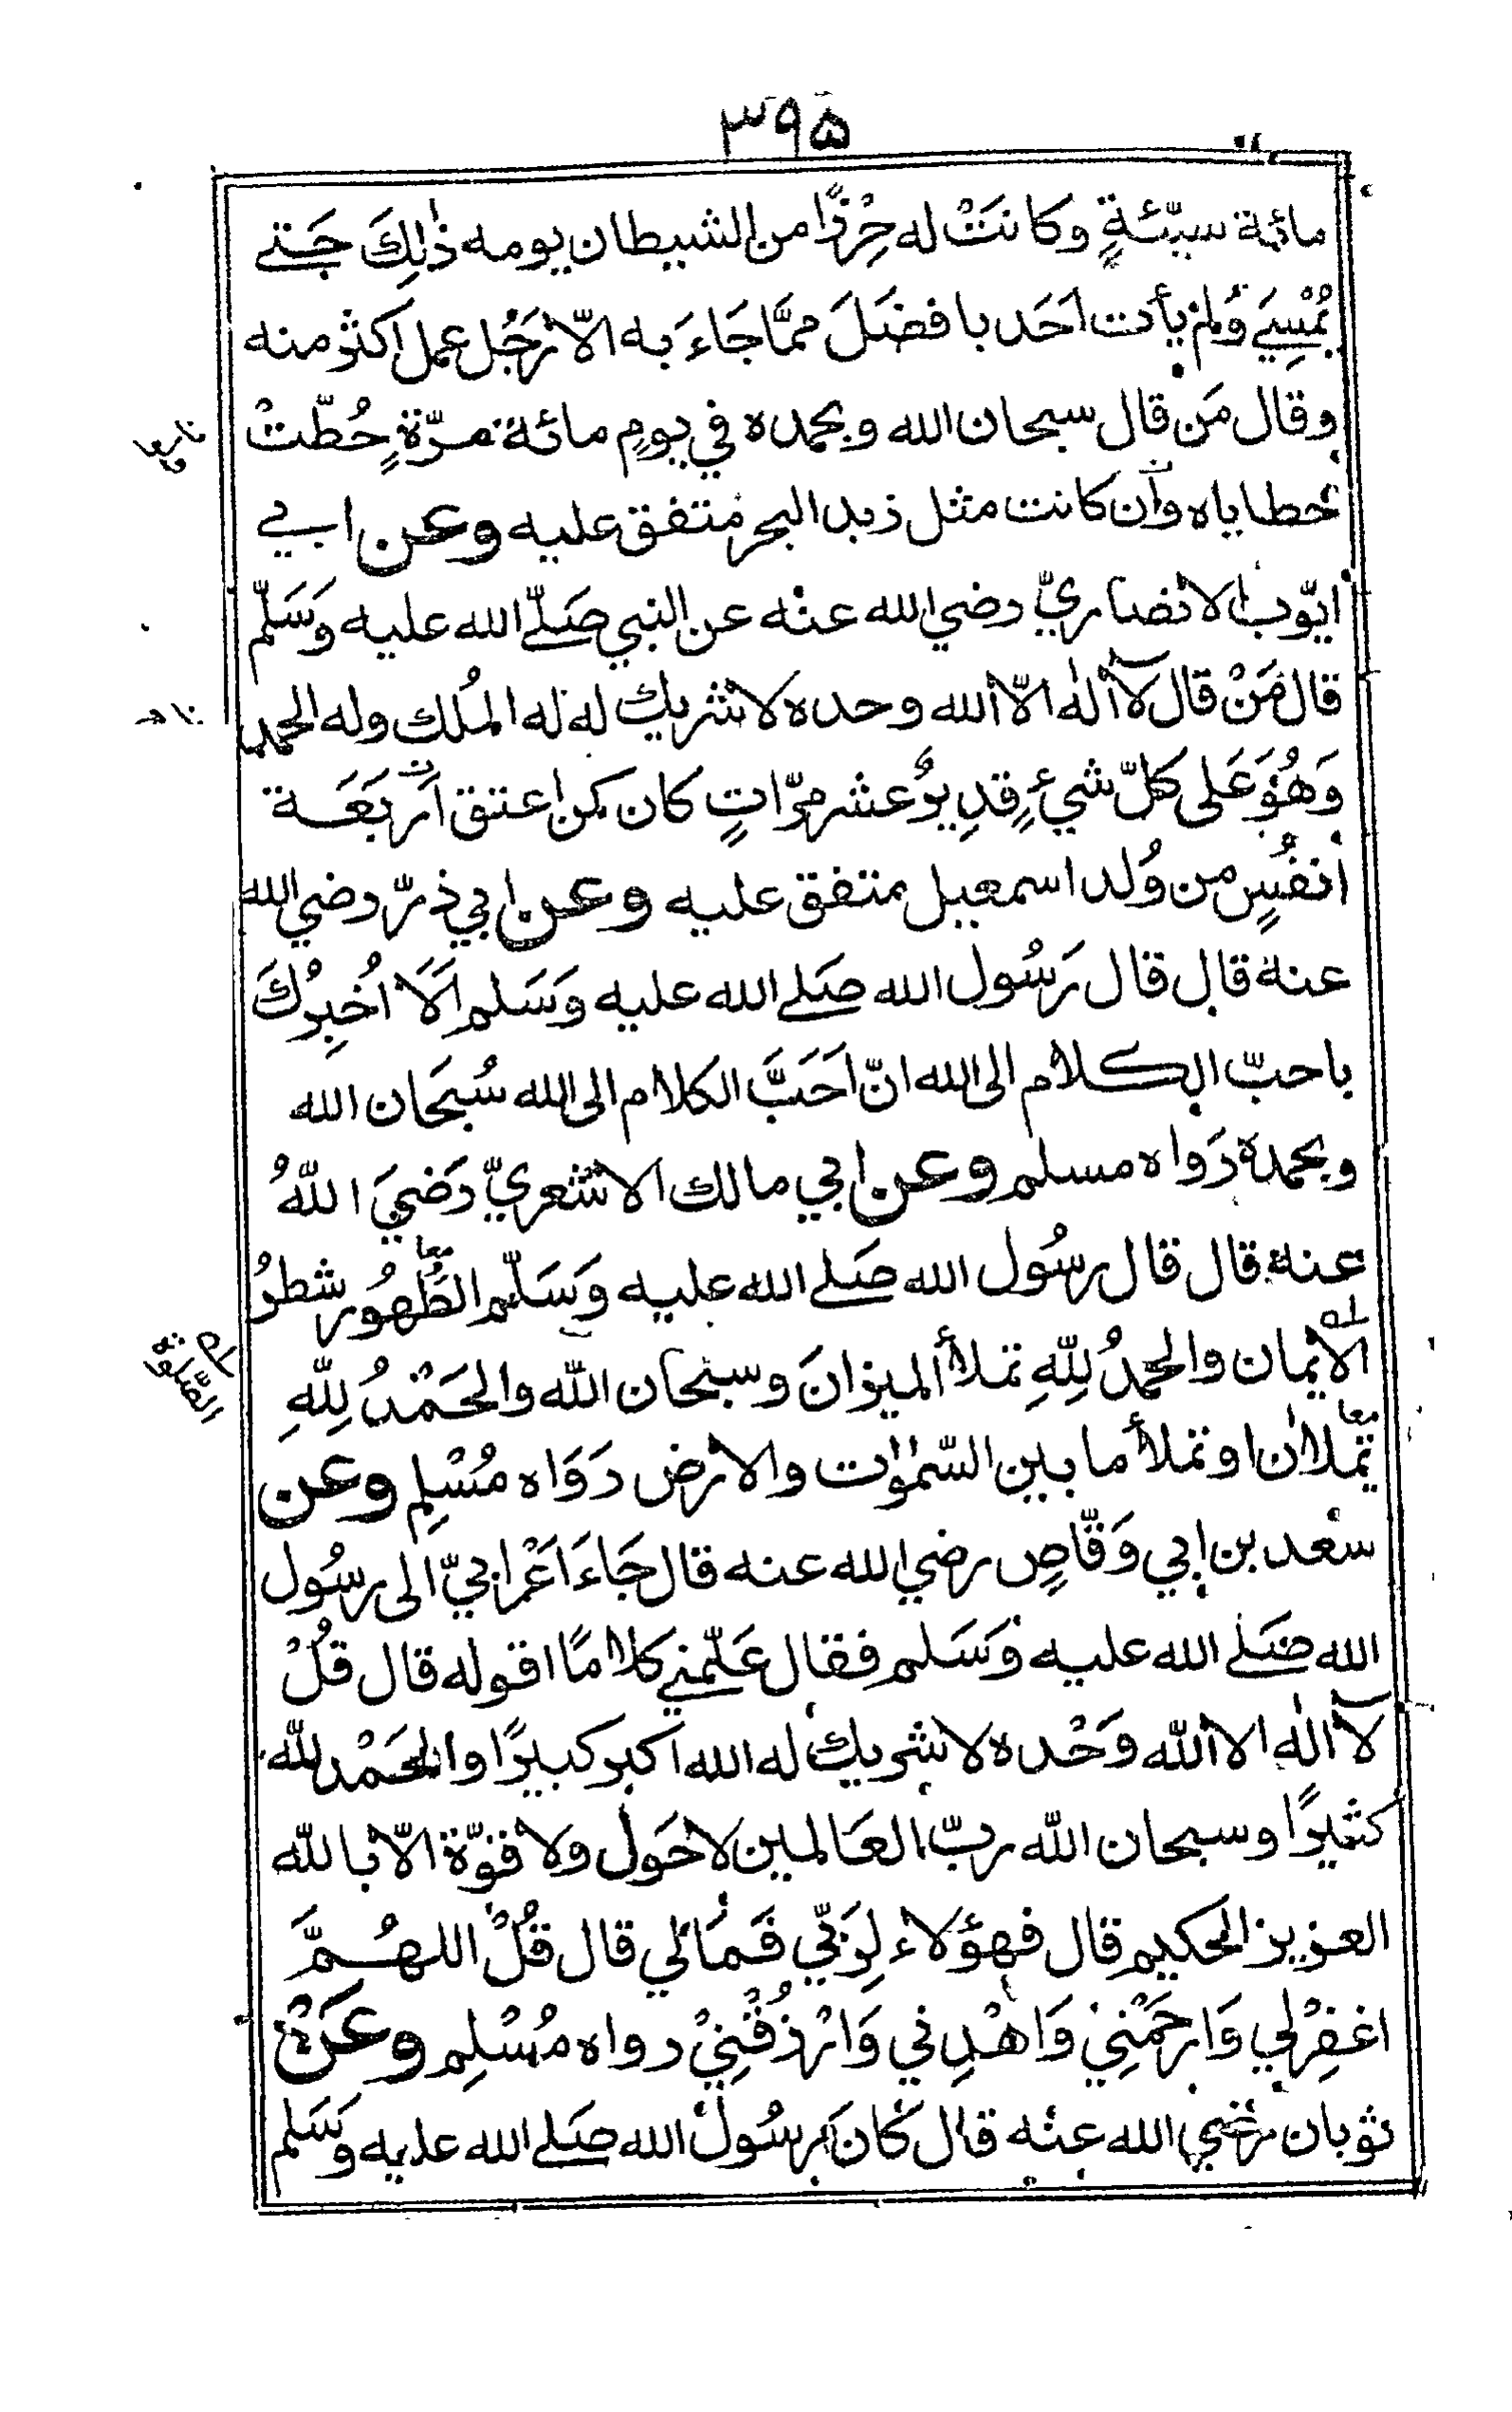 ٣٩۵
مائة سيّئةٍ وكانَتْ له حِرْزًا من الشيطان يومه ذٰلِكَ حَتے
يُمْسِيَ وَلم يأت احَد بافضَلَ ممَّا جَاءَ به الّا رَجُل عمل اكثر منه
وقال مَن قال سبحان الله وبحمده في يومٍ مائة مرّةٍ حُطّتْ
خطاياه وان كانت مثل زبد البحر متفق عليه وعن ابي
ايّوب الانصاريّ رضي الله عنه عن النبي صَلّے الله عليه وَسَلّم
قال مَنْ قال لآ الٰه الّا الله وحده لا شريك له له المُلك وله الحمد
وَهُوَ عَلى كلّ شيءٍ قدِيرٌ عشر مرّاتٍ كان كمن اعتق اَربَعَة
انفُسٍ من وُلد اسمعيل متفق عليه وعن ابي ذرّ رضي الله
عنه قال قال رَسُول الله صَلے الله عليه وَسَلم اَلَا اُخبِرُكَ
باحبّ الكلام الى الله انّ اَحَبَّ الكلام الى الله سُبحَان الله
وبحمده رَواه مسلم وعن ابي مالك الاشعريّ رَضيَ اللّٰهُ
عنه قال قال رسُول الله صَلے الله عليه وَسَلّم الطُّهُور شطرُ
الايمان والحمدُ لِلّٰهِ تملأ الميزانَ وسبحان اللّٰه والحَمْدُ لِلّٰهِ
تملاٰن او تملأ ما بين السّمٰوٰت والارض رَوَاه مُسْلِم وعن
سعد بن ابي وَقّاصٍ رضي الله عنه قال جَاءَ اَعْرابيّ الى رسُول
الله صَلے الله عليه وَسَلم فقال عَلّمني كلامًا اقوله قال قُلْ
لآ الٰه الا اللّٰه وَحْده لا شريك له الله اكبر كبيرًا والحَمْد للّٰه
كثيرًا وسبحان اللّٰه ربّ العَالمين لا حَول ولا قوّة الّا باللّٰه
العزيز الحكيم قال فهؤلاء لِرَبّي فَمَا لي قال قُلْ اللهُمَّ
اغفِرْلي وَارحَمْنِي وَاهْدِني وَارْزُقْنِيْ رواه مُسْلِم وعَنْ
ثوبان رضي الله عنه قال كانَ رسُول الله صَلے الله عليه وَسَلم
الصّلوة